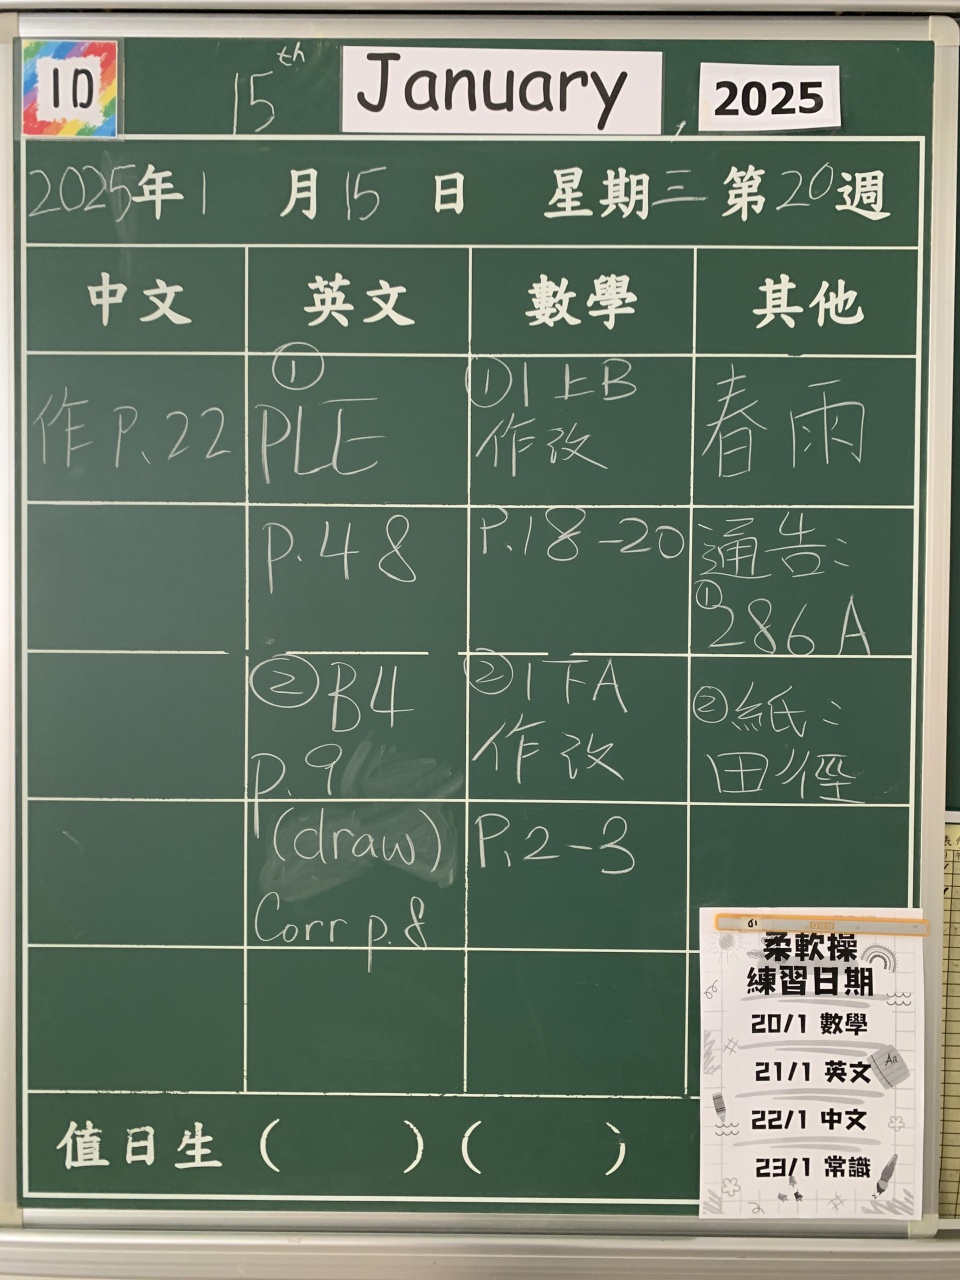 1D
15th January, 2025
2025年1月15日 星期三 第20週
中文 英文 數學 其他
作 P.22
①
PLE
P.48
② B4
p.9
(draw)
Corr p.8
① 1上B
作改
P.18-20
② 1下A
作改
P.2-3
春雨
通告:
① 286A
② 紙:
田徑
柔軟操
練習日期
20/1 數學
21/1 英文
22/1 中文
23/1 常識
Aa
值日生 ( ) ( )